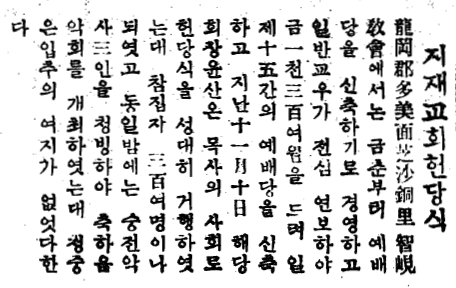 지재교회헌당식
龍岡郡多美面芝沙銅里智峴
敎會에서는 금춘부터 예배
당을 신축하기로 경영하고
일반교우가 전심 연보하야
금一천三백여원을 드려 일
제十五간의 예배당을 신축
하고 지난十一月十日 해당
회장윤산온 목사의 사회로
헌당식을 성대히 거행하엿
는대 참집자 三백여명이나
되엿고 동일밤에는 숭전악
사三인을 청빙하야 축하음
악회를 개최하엿는대 청중
은입추의 여지가 없엇다한
다